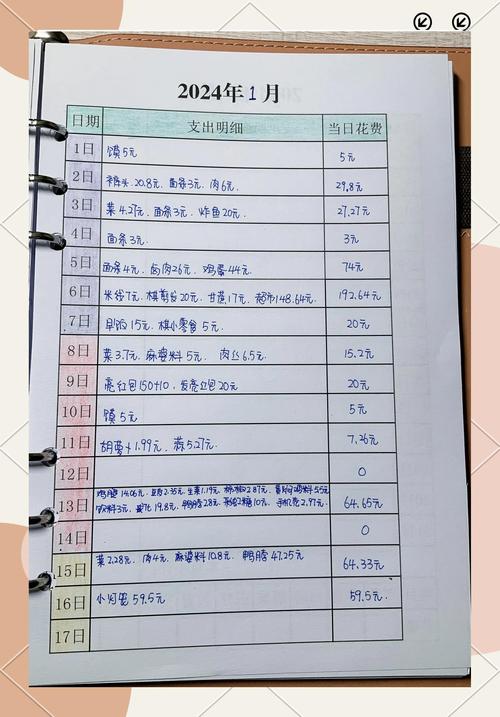 2024年1月
日期 支出明细 当日花费
1日 馍5元 5元
2日 裤头20.8元、面条3元、肉6元 29.8元
3日 菜4.27元、面条3元、炸鱼20元 27.27元
4日 面条3元 3元
5日 面条4元、卤肉26元、鸡蛋44元 74元
6日 米线7元、棋剪发20元、甘蔗17元、超市148.64元 192.64元
7日 早饭15元、棋小零食5元 20元
8日 菜3.7元、麻婆料5元、肉丝6.5元 15.2元
9日 亮红包150+10、发亮红包20元 20元
10日 馍5元 5元
11日 胡萝卜1.99元、蒜5.27元 7.26元
12日 0
13日 鸡腿14.06元、豆腐2.35元、生菜1.19元、2.87元、5.5元
饮料3元、19.8元、鸭脖28元、10元、手机壳2.97元 64.65元
14日 0
15日 菜2.28元、肉4元、麻婆料10.8元、鸭脖47.25元 64.33元
16日 小灯笼59.5元 59.5元
17日